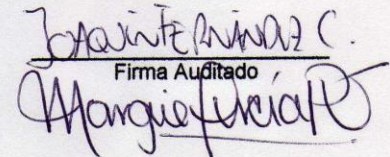 JOAQUIN FERNÁNDEZ C.
Firma Auditado
Margie García R